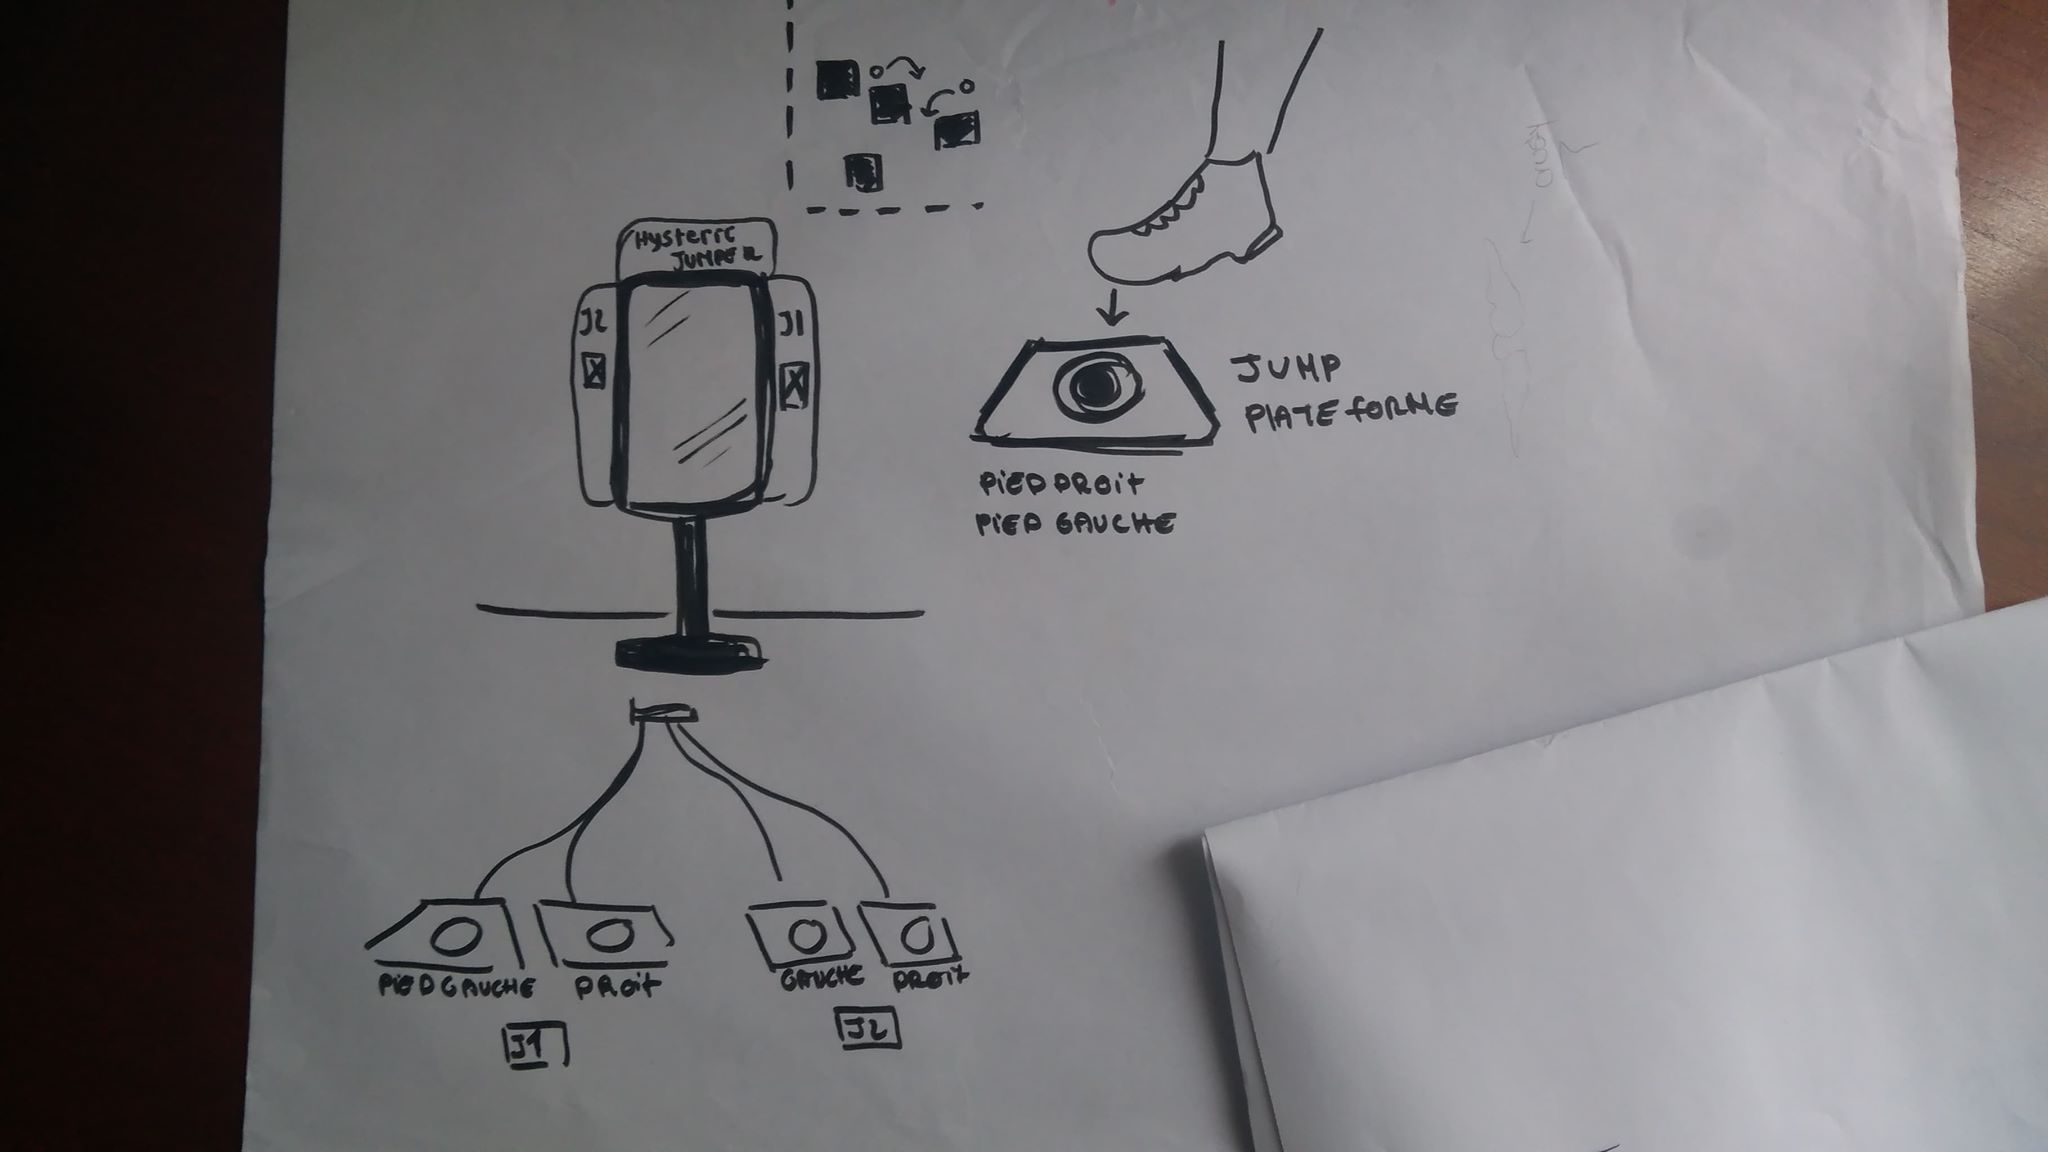 Hysteric
JUMPER
J2
J1
JUMP
PLATEFORME
PIED DROIT
PIED GAUCHE
PIED GAUCHE
DROIT
GAUCHE
DROIT
J1
J2